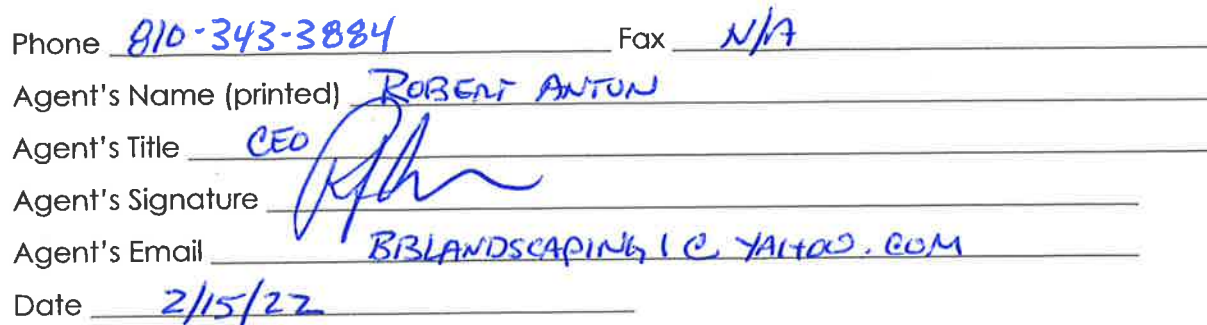 Phone 810-343-3884 Fax N/A
Agent's Name (printed) ROBERT ANTON
Agent's Title CEO
Agent's Signature
Agent's Email BBLANDSCAPING1@YAHOO.COM
Date 2/15/22